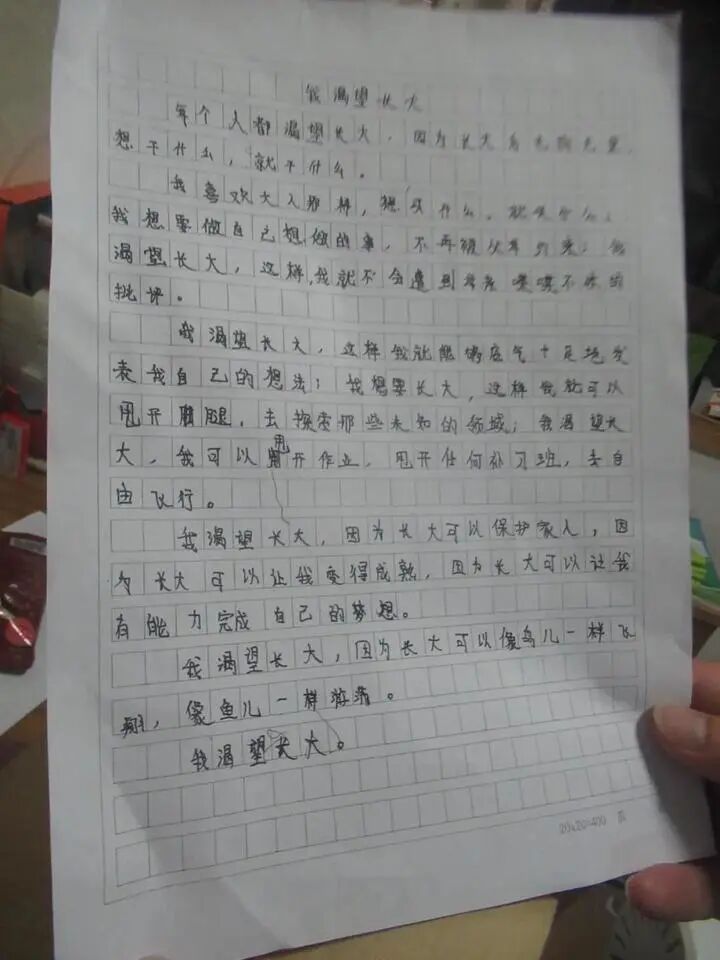 我渴望长大
每个人都渴望长大，因为长大后无拘无束，
想干什么，就干什么。
我喜欢大人那样，想买什么，就买什么，
我想要做自己想做的事，不再被父母约束；我
渴望长大，这样，我就不会遭到老师喋喋不休的
批评。
我渴望长大，这样我就能够底气十足地发
表我自己的想法；我想要长大，这样我就可以
甩开腿，去探索那些未知的领域；我渴望长
大，我可以甩开作业，甩开任何补习班，去自
由飞行。
我渴望长大，因为长大可以保护家人，因
为长大可以让我变得成熟，因为长大可以让我
有能力完成自己的梦想。
我渴望长大，因为长大可以像鸟儿一样飞
翔，像鱼儿一样游
我渴望长大。
20×20=400